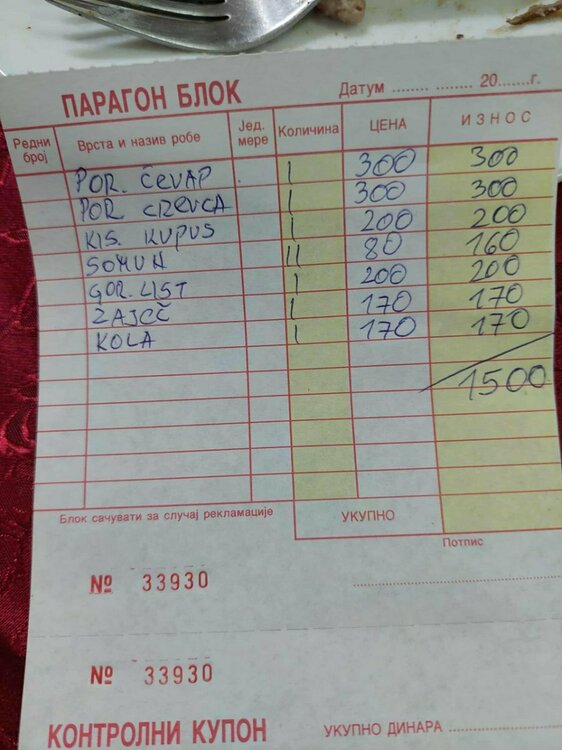 ПАРАГОН БЛОК Датум ........ ........ 20.......г.
Редни број Врста и назив робе Јед. мере Количина ЦЕНА ИЗНОС
POR. ČEVAP I 300 300
POR CREVCA I 300 300
KIS. KUPUS I 200 200
SOMUN II 80 160
GOR. LIST I 200 200
ZAJEČ I 170 170
KOLA I 170 170
1500
Блок сачувати за случај рекламације УКУПНО
Потпис
№ 33930
№ 33930
КОНТРОЛНИ КУПОН УКУПНО ДИНАРА